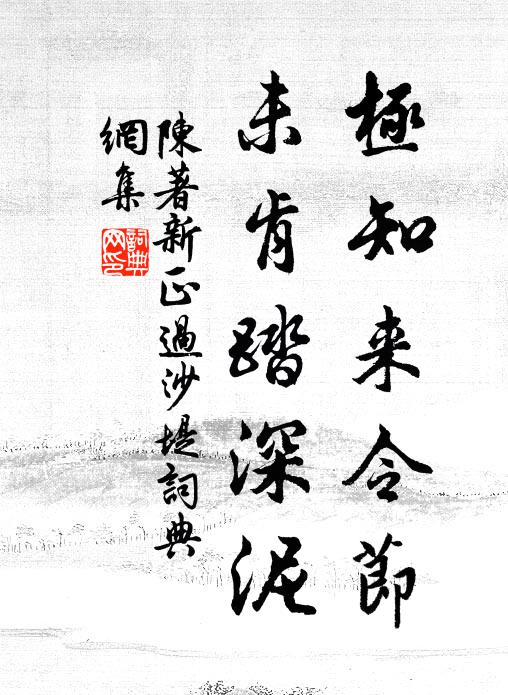 極知来令節
未肯踏深泥
陳著新正過沙堤詞典
網集
詞典網印